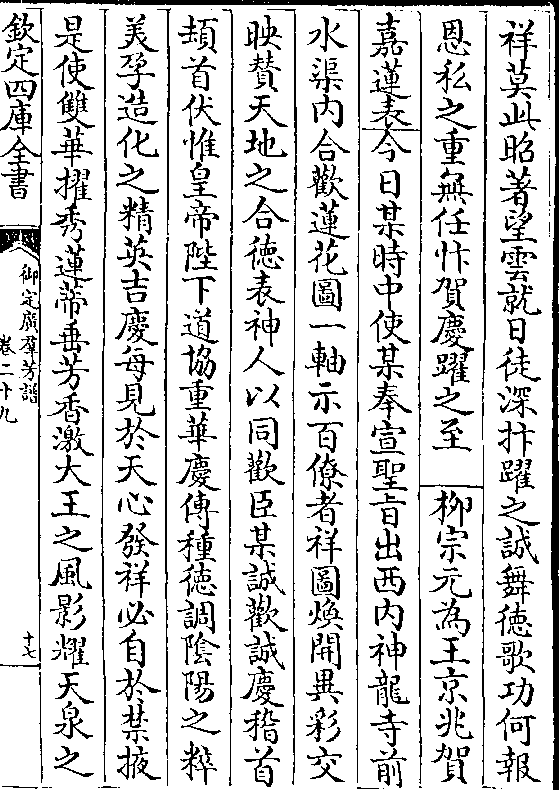 祥莫此昭著望雲就日徒深抃躍之誠舞徳歌功何報
恩私之重無任忭賀慶躍之至 柳宗元為王京兆賀
嘉蓮表今日某時中使某奉宣聖旨出西内神龍寺前
水渠内合歡蓮花圖一軸示百僚者祥圖煥開異彩交
映賛天地之合徳表神人以同歡臣某誠歡誠慶稽首
頓首伏惟皇帝陛下道協重華慶傳種徳調陰陽之粹
美孕造化之精英吉慶毎見於天心發祥必自於禁掖
是使雙華擢秀蓮蔕垂芳香激大王之風影耀天泉之
欽定四庫全書
御定廣羣芳譜
卷二十九
十七